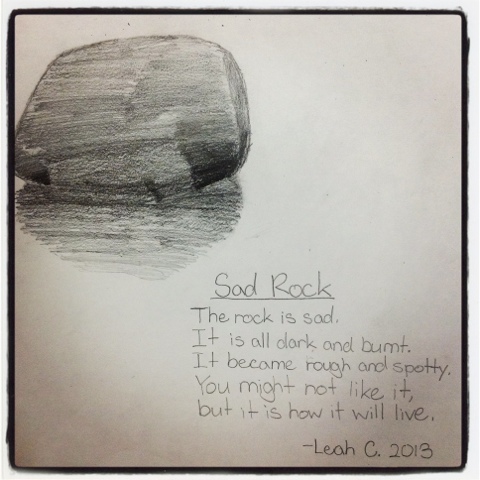 Sad Rock
The rock is sad.
It is all dark and burnt.
It became rough and spotty.
You might not like it,
but it is how it will live.
-Leah C. 2013